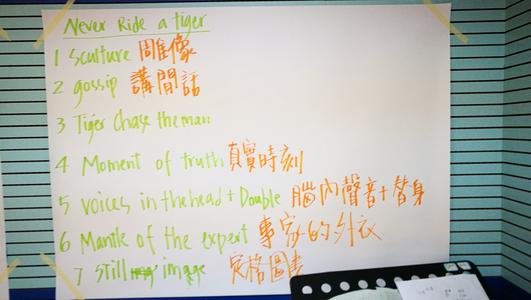 Never Ride a tiger
1 Sculture 周隹像
2 gossip 講閒話
3 Tiger Chase the man
4 Moment of truth 真實時刻
5 voices in the head + Double 腦內聲音+替身
6 Mantle of the expert 專家的外衣
7 still image 定格圖畫